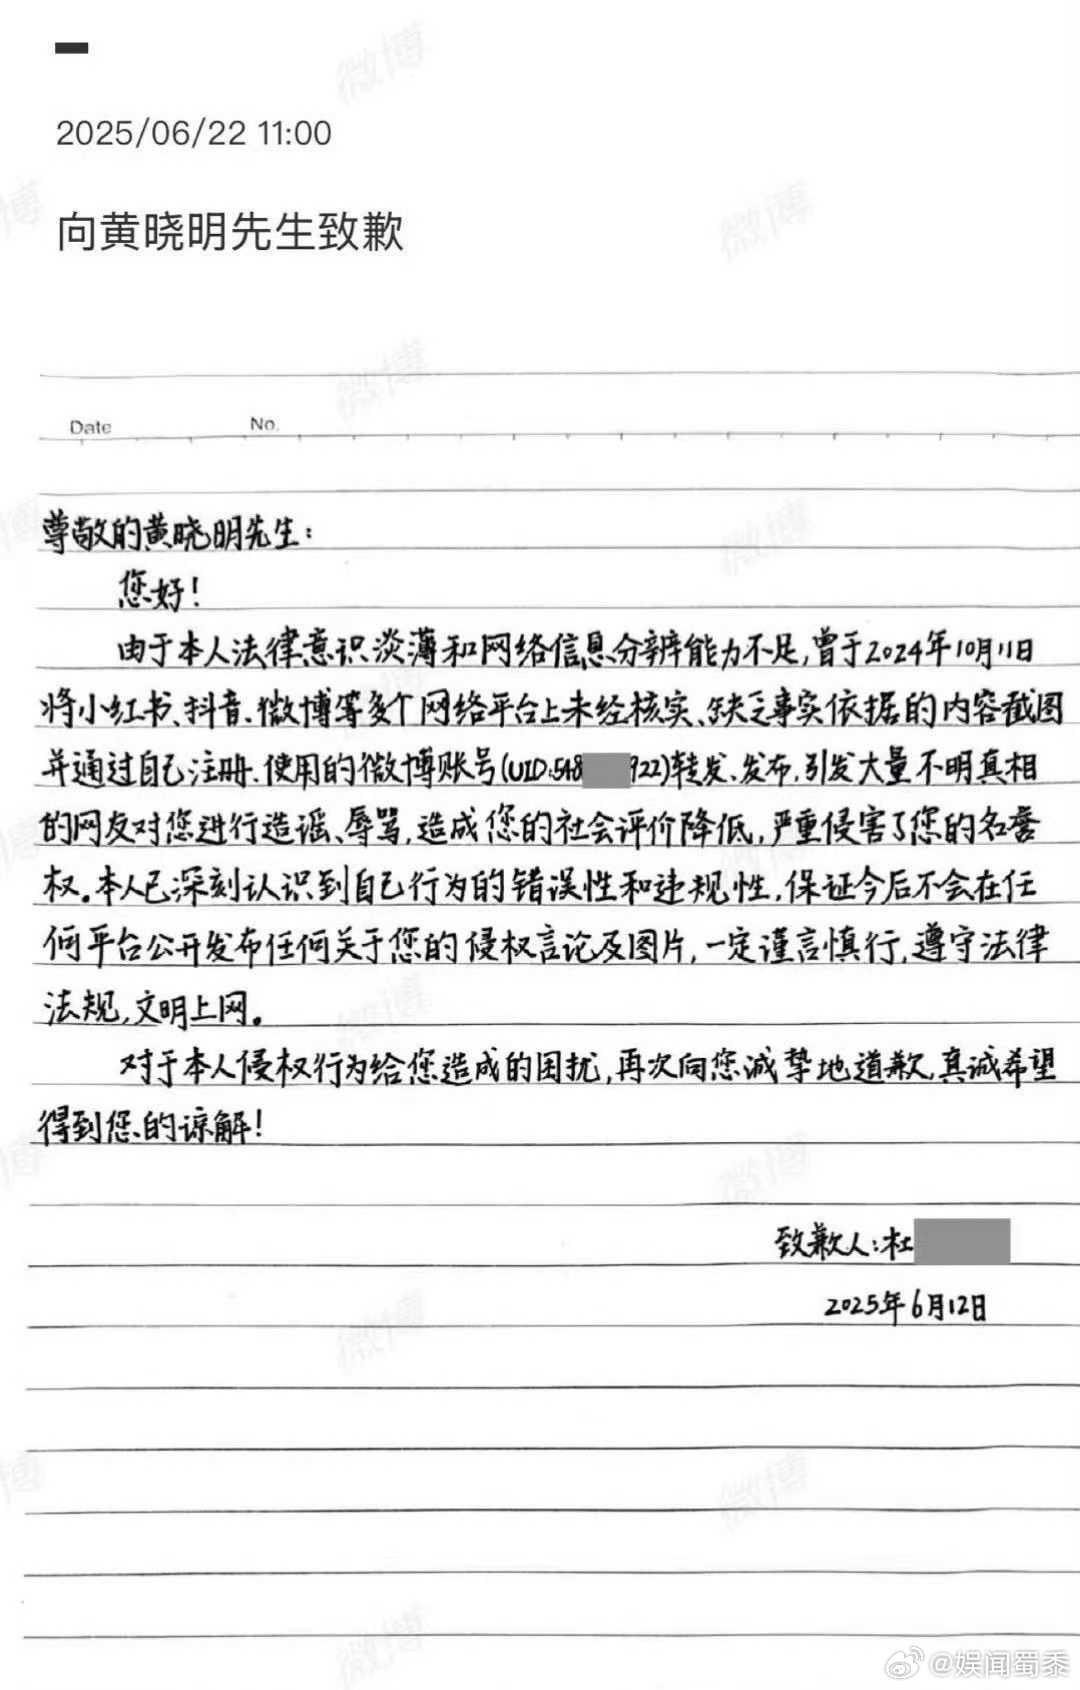 2025/06/22 11:00
向黄晓明先生致歉
Date No.
尊敬的黄晓明先生：
您好！
由于本人法律意识淡薄和网络信息分辨能力不足，曾于2024年10月11日
将小红书、抖音、微博等多个网络平台上未经核实、缺乏事实依据的内容截图
并通过自己注册、使用的微博账号(UID:548 922)转发、发布，引发大量不明真相
的网友对您进行造谣、辱骂，造成您的社会评价降低，严重侵害了您的名誉
权。本人已深刻认识到自己行为的错误性和违规性，保证今后不会在任
何平台公开发布任何关于您的侵权言论及图片，一定谨言慎行，遵守法律
法规，文明上网。
对于本人侵权行为给您造成的困扰，再次向您诚挚地道歉，真诚希望
得到您的谅解！
致歉人：杜
2025年6月12日
@娱闻蜀黍
微博